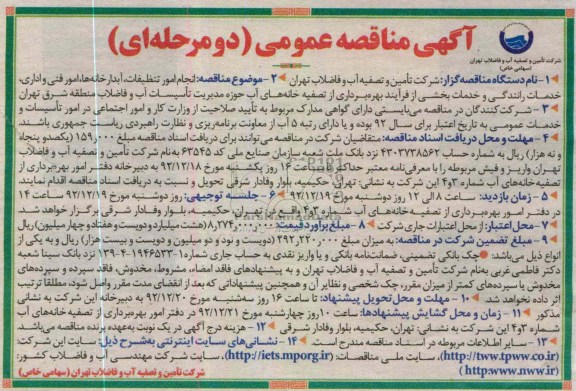 آگهی مناقصه عمومی (دو مرحله‌ای)
شرکت تأمین و تصفیه آب و فاضلاب تهران
(سهامی خاص)
۱- نام دستگاه مناقصه گزار: شرکت تأمین و تصفیه آب و فاضلاب تهران ۲- موضوع مناقصه: انجام امور تنظیفات، آبدارخانه‌ها، امور فنی و اداری،
خدمات رانندگی و خدمات بخشی از فرآیند بهره‌برداری از تصفیه خانه‌های آب حوزه مدیریت تأسیسات آب و فاضلاب منطقه شرق تهران
۳- شرکت کنندگان در مناقصه می‌بایستی دارای گواهی مدارک مربوط به تأیید صلاحیت از وزارت کار و امور اجتماعی در امور تأسیسات و
خدمات عمومی به تاریخ اعتبار برای سال ۹۲ بوده و یا دارای رتبه ۵ آب از معاونت برنامه‌ریزی و نظارت راهبردی ریاست جمهوری باشند.
۴- مهلت و محل دریافت اسناد مناقصه: متقاضیان شرکت در مناقصه می‌توانند برای دریافت اسناد مناقصه مبلغ ۱۵۹٫۰۰۰ (یکصدو پنجاه
و نه هزار) ریال به شماره حساب ۴۳۰۷۳۸۵۶۲ نزد بانک ملت شعبه سازمان صنایع ملی کد ۶۳۵۴۵ به نام شرکت تأمین و تصفیه آب و فاضلاب
تهران واریز و فیش مربوطه را با معرفی‌نامه معتبر حداکثر ساعت ۱۶ روز یکشنبه مورخ ۹۲/۱۲/۱۸ به دبیرخانه دفتر امور بهره‌برداری از
تصفیه‌خانه‌های آب شماره ۳و۴ این شرکت به نشانی: تهران، حکیمیه، بلوار وفادار شرقی تحویل و نسبت به دریافت اسناد مناقصه اقدام نمایند.
۵- زمان بازدید: ساعت ۸ الی ۱۲ روز دوشنبه مورخ ۹۲/۱۲/۱۹ ۶- جلسه توجیهی: روز دوشنبه مورخ ۹۲/۱۲/۱۹ ساعت ۱۴
در دفتر امور بهره‌برداری از تصفیه خانه‌های آب شماره ۳و۴ واقع در تهران، حکیمیه، بلوار وفادار شرقی برگزار خواهد شد.
۷- محل اعتبار: از محل اعتبارات جاری شرکت ۸- مبلغ برآورد قیمت: ۸٫۲۷۴٫۰۰۰٫۰۰۰ (هشت میلیارد و دویست و هفتاد و چهار میلیون) ریال
۹- مبلغ تضمین شرکت در مناقصه: به میزان مبلغ ۲۹۲٫۲۲۰٫۰۰۰ (دویست و نود و دو میلیون و دویست و بیست هزار) ریال و به یکی از
انواع ذیل می‌باشد: چک بانکی تضمینی، ضمانت‌نامه بانکی و یا واریز نقدی به حساب جاری شماره نزد بانک سینا شعبه
دکتر فاطمی غربی به‌نام شرکت تأمین و تصفیه آب و فاضلاب تهران و به پیشنهادهای فاقد امضاء، مشروط، مخدوش، فاقد سپرده و سپرده‌های
مخدوش یا سپرده‌های کمتر از میزان مقرر، چک شخصی و نظایر آن و همچنین پیشنهاداتی که بعد از انقضای مدت مقرر واصل شود، مطلقا ترتیب
اثر داده نخواهد شد. ۱۰- مهلت و محل تحویل پیشنهاد: تا ساعت ۱۶ روز سه‌شنبه مورخ ۹۲/۱۲/۲۰ به دبیرخانه این شرکت به نشانی
مذکور ۱۱- زمان و محل گشایش پیشنهادها: ساعت ۱۰ روز چهارشنبه مورخ ۹۲/۱۲/۲۱ در دفتر امور بهره‌برداری از تصفیه خانه‌های آب
شماره ۳و۴ این شرکت به نشانی: تهران، حکیمیه، بلوار وفادار شرقی ۱۲- هزینه درج آگهی در یک نوبت به‌عهده برنده مناقصه می‌باشد.
۱۳- سایر اطلاعات مربوطه در اسناد مناقصه مندرج است. ۱۴- نشانی‌های سایت اینترنتی به‌شرح ذیل: سایت این شرکت:
(http://tww.tpww.co.ir)، سایت ملی مناقصات: (http://iets.mporg.ir)، سایت شرکت مهندسی آب و فاضلاب کشور:
(http:www.nww.ir)
شرکت تأمین و تصفیه آب و فاضلاب تهران (سهامی خاص)